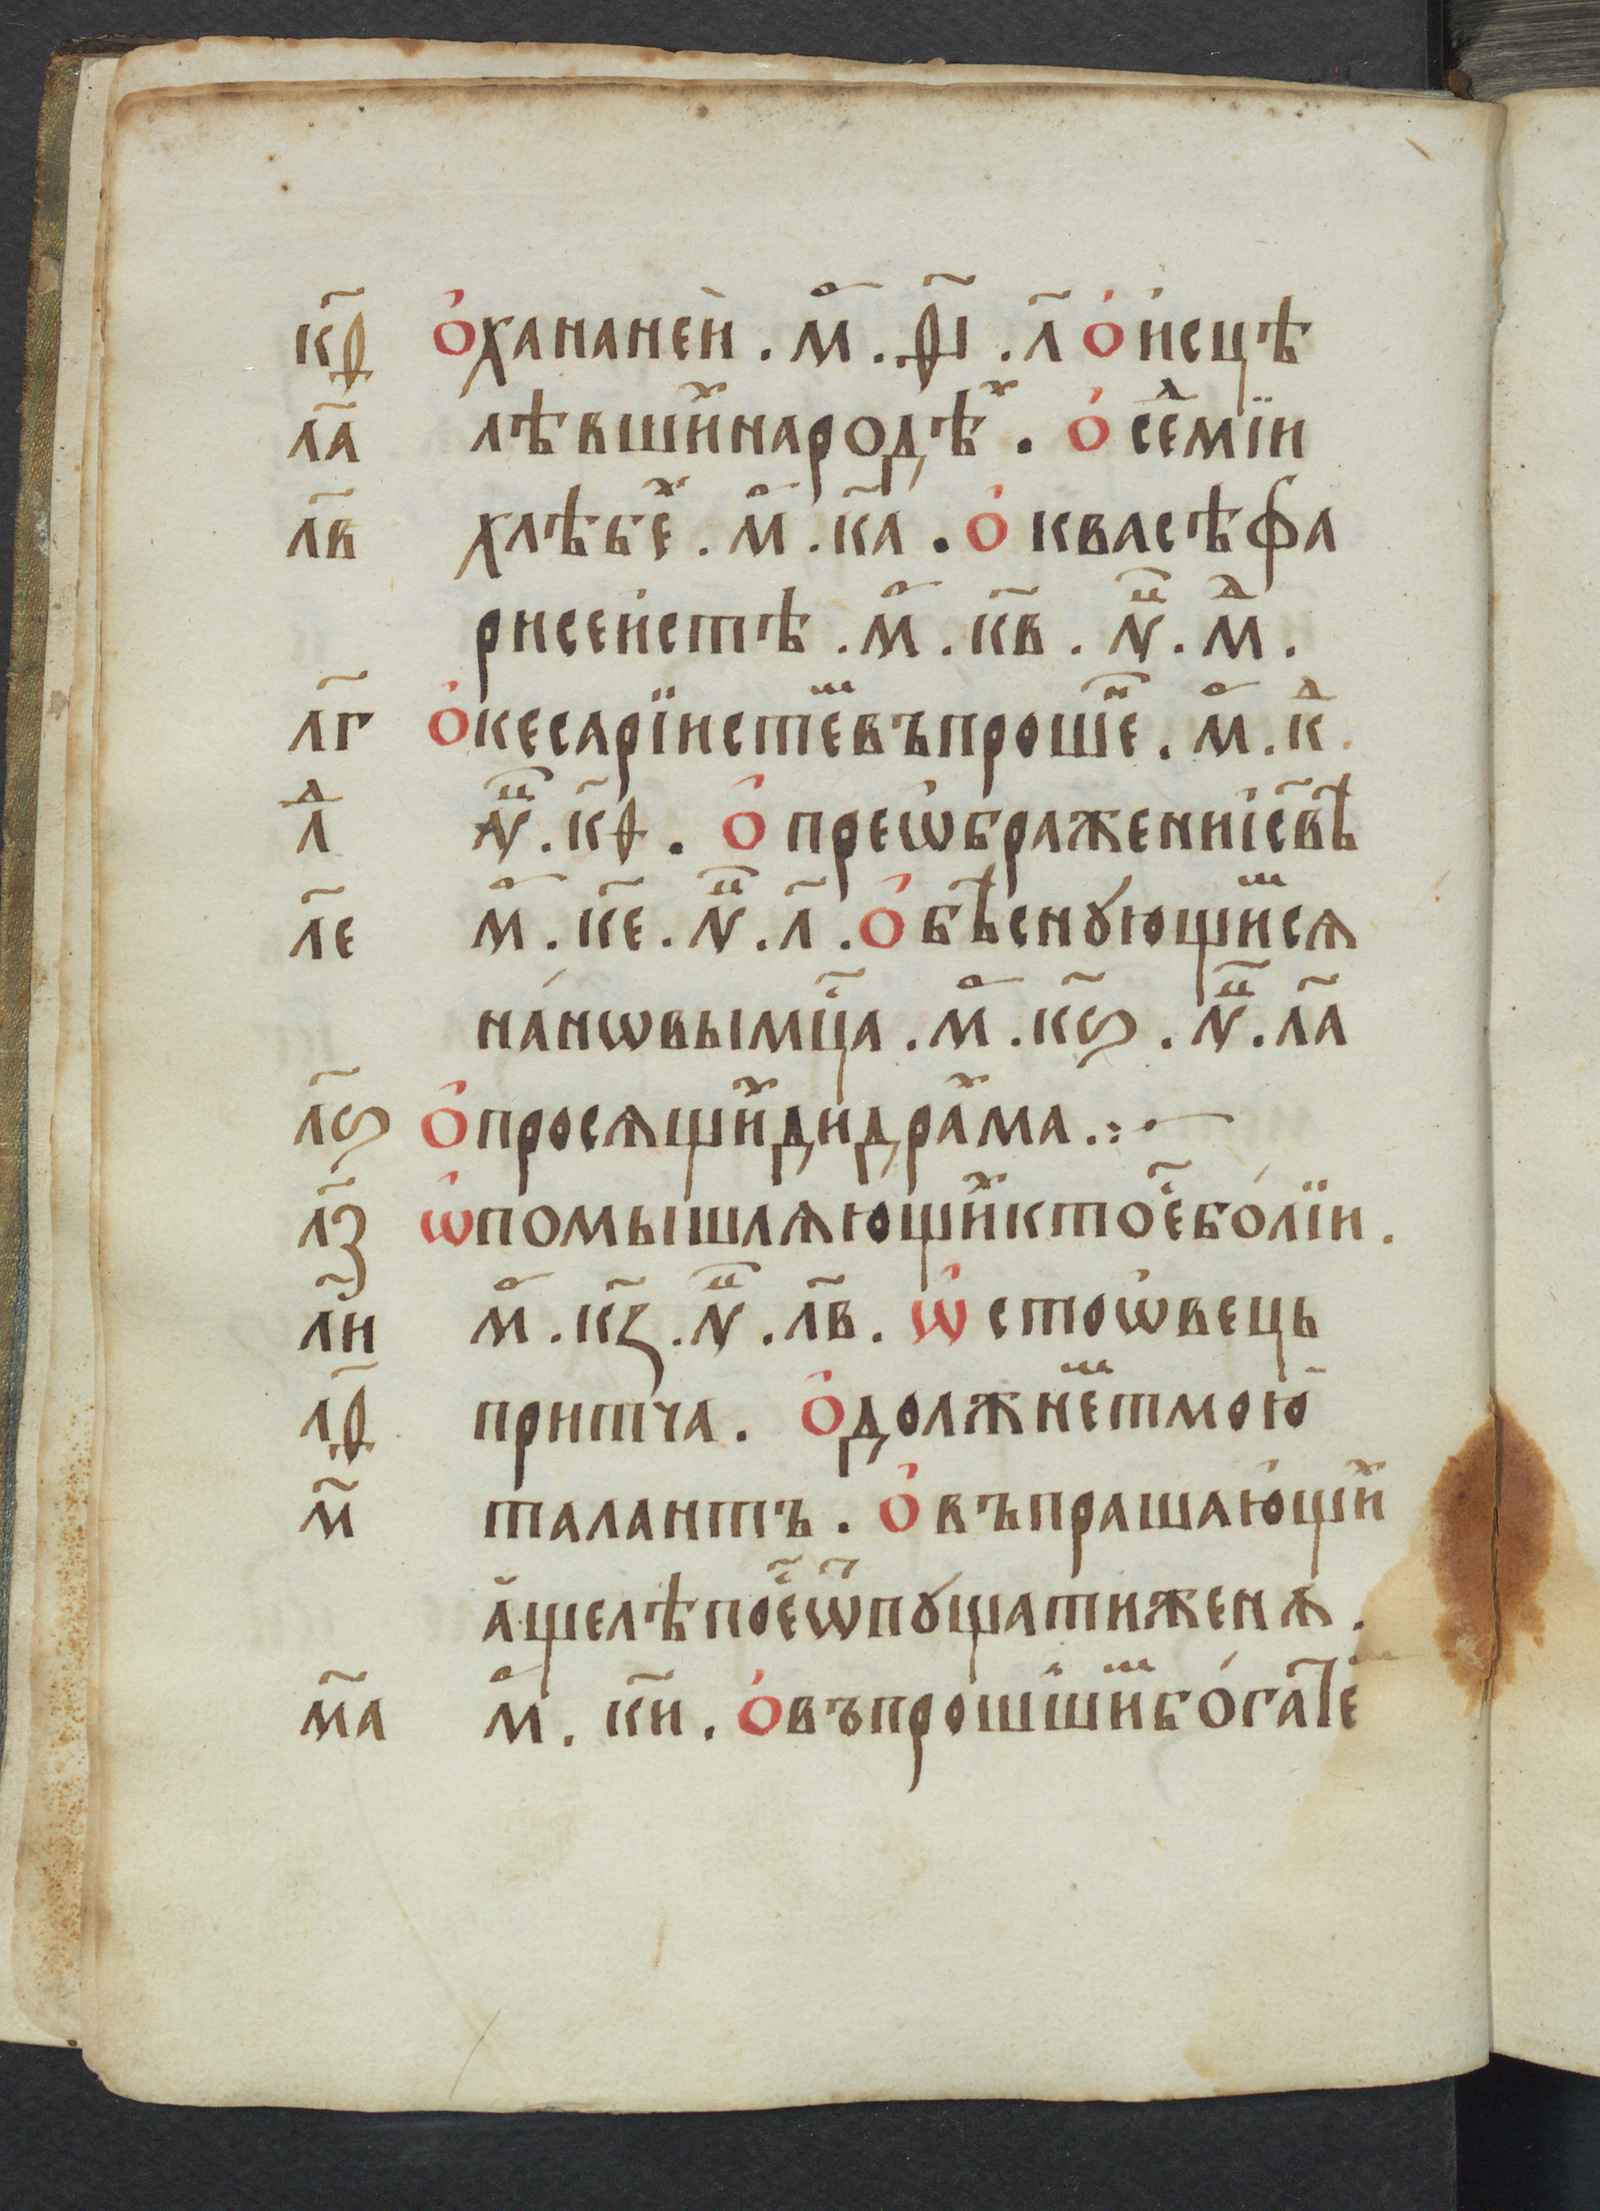 к҃ѳ ѻ҆хананеѝ . мⷬ҇ . ѳ҃і . л҃ ѻ҆ и҆сцѣ
л҃а лѣвшиⷯ҇народѣⷯ . ѻ҆ сеⷣ҇мїи
л҃в хлѣбеⷯ҇ . мⷬ҇ . к҃а . ѻ҆ квасѣ фа
рисеи҆стѣ . мⷬ҇ . к҃в . н . мⷣ҇ .
л҃г ѻ҆кесарїистеⷨ҇въпрошеⷩ҇ . мⷬ҇ . кⷣ҇ .
лⷣ҇ н . к҃ѳ . ѻ҆ преѡ҆бражениі с҃вѣ
л҃е мⷬ҇ . к҃е . н . л҃ . ѻ҆ бѣснꙋющиⷨ҇сѧ
на́нѡвымцⷭ҇а . мⷬ҇ . к҃ѕ . н . л҃а
л҃ѕ ѻ҆просѧщиⷯ҇дидраⷯ҇ма . : ·
л҃з ѡ҆помышлѧющиⷯ҇ктоеⷭ҇бо́лїи .
л҃и мⷬ҇ . к҃з . н . л҃в . ѡ҆ стоѡ҆вець
л҃ѳ притча . ѻ҆должнеⷨ҇тмою҆
м҃ талантъ . ѻ҆ въпрашаю҆щиⷯ҇
а҆щелѣпоеⷭ҇ѡ҃пꙋщатиженѫ .
м҃а мⷬ҇ . к҃и . ѻ҆въпрошⷲ҇иⷨ҇бо́гатѣⷨ